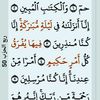 حمٓ ۝ وَٱلْكِتَٰبِ ٱلْمُبِينِ ۝
إِنَّآ أَنزَلْنَٰهُ فِى لَيْلَةٍ مُّبَٰرَكَةٍ إِنَّا
كُنَّا مُنذِرِينَ ۝ فِيهَا يُفْرَقُ
كُلُّ أَمْرٍ حَكِيمٍ ۝ أَمْرًا مِّنْ
عِندِنَآ إِنَّا كُنَّا مُرْسِلِينَ